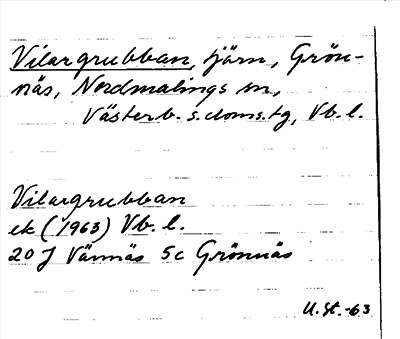 Vilargrubban, tjärn, Grön-
näs, Nordmalings sn,
Västerb. s. doms.tg, Vb. l.
Vilargrubban
ek (1963) Vb. l.
20 J Vännäs 5c Grönnäs
U. St. -63